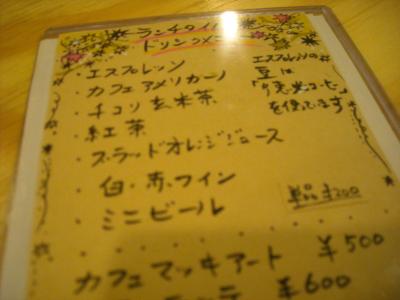 ランチタイム
ドリンクメニュー
・エスプレッソ
・カフェアメリカーノ
・チコリ玄米茶
・紅茶
・ブラッドオレンジジュース
・白・赤ワイン
・ミニビール
エスプレッソの
豆は
を使ってます
単品¥200
カフェマッキアート ¥500
¥600